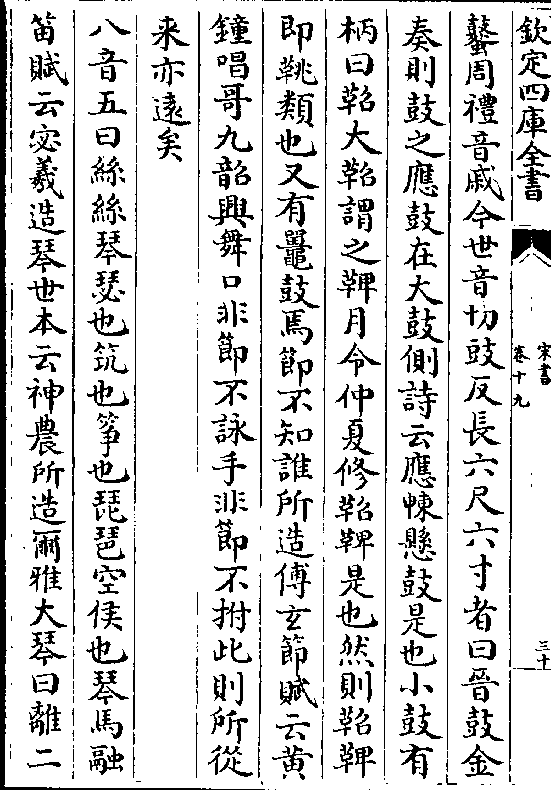 欽定四庫全書
宋書
卷十九
三十
鼜周禮音戚今世音切豉反長六尺六寸者曰晉鼓金
奏則鼓之應鼓在大鼓側詩云應朄懸鼓是也小鼓有
柄曰鞀大鞀謂之鞞月令仲夏修鞀鞞是也然則鞀鞞
即鞉類也又有鼉鼓焉節不知誰所造傅玄節賦云黄
鐘唱哥九韶興舞口非節不詠手非節不拊此則所從
来亦逺矣
八音五曰絲絲琴瑟也筑也箏也琵琶空侯也琴馬融
笛賦云宓羲造琴世本云神農所造爾雅大琴曰離二